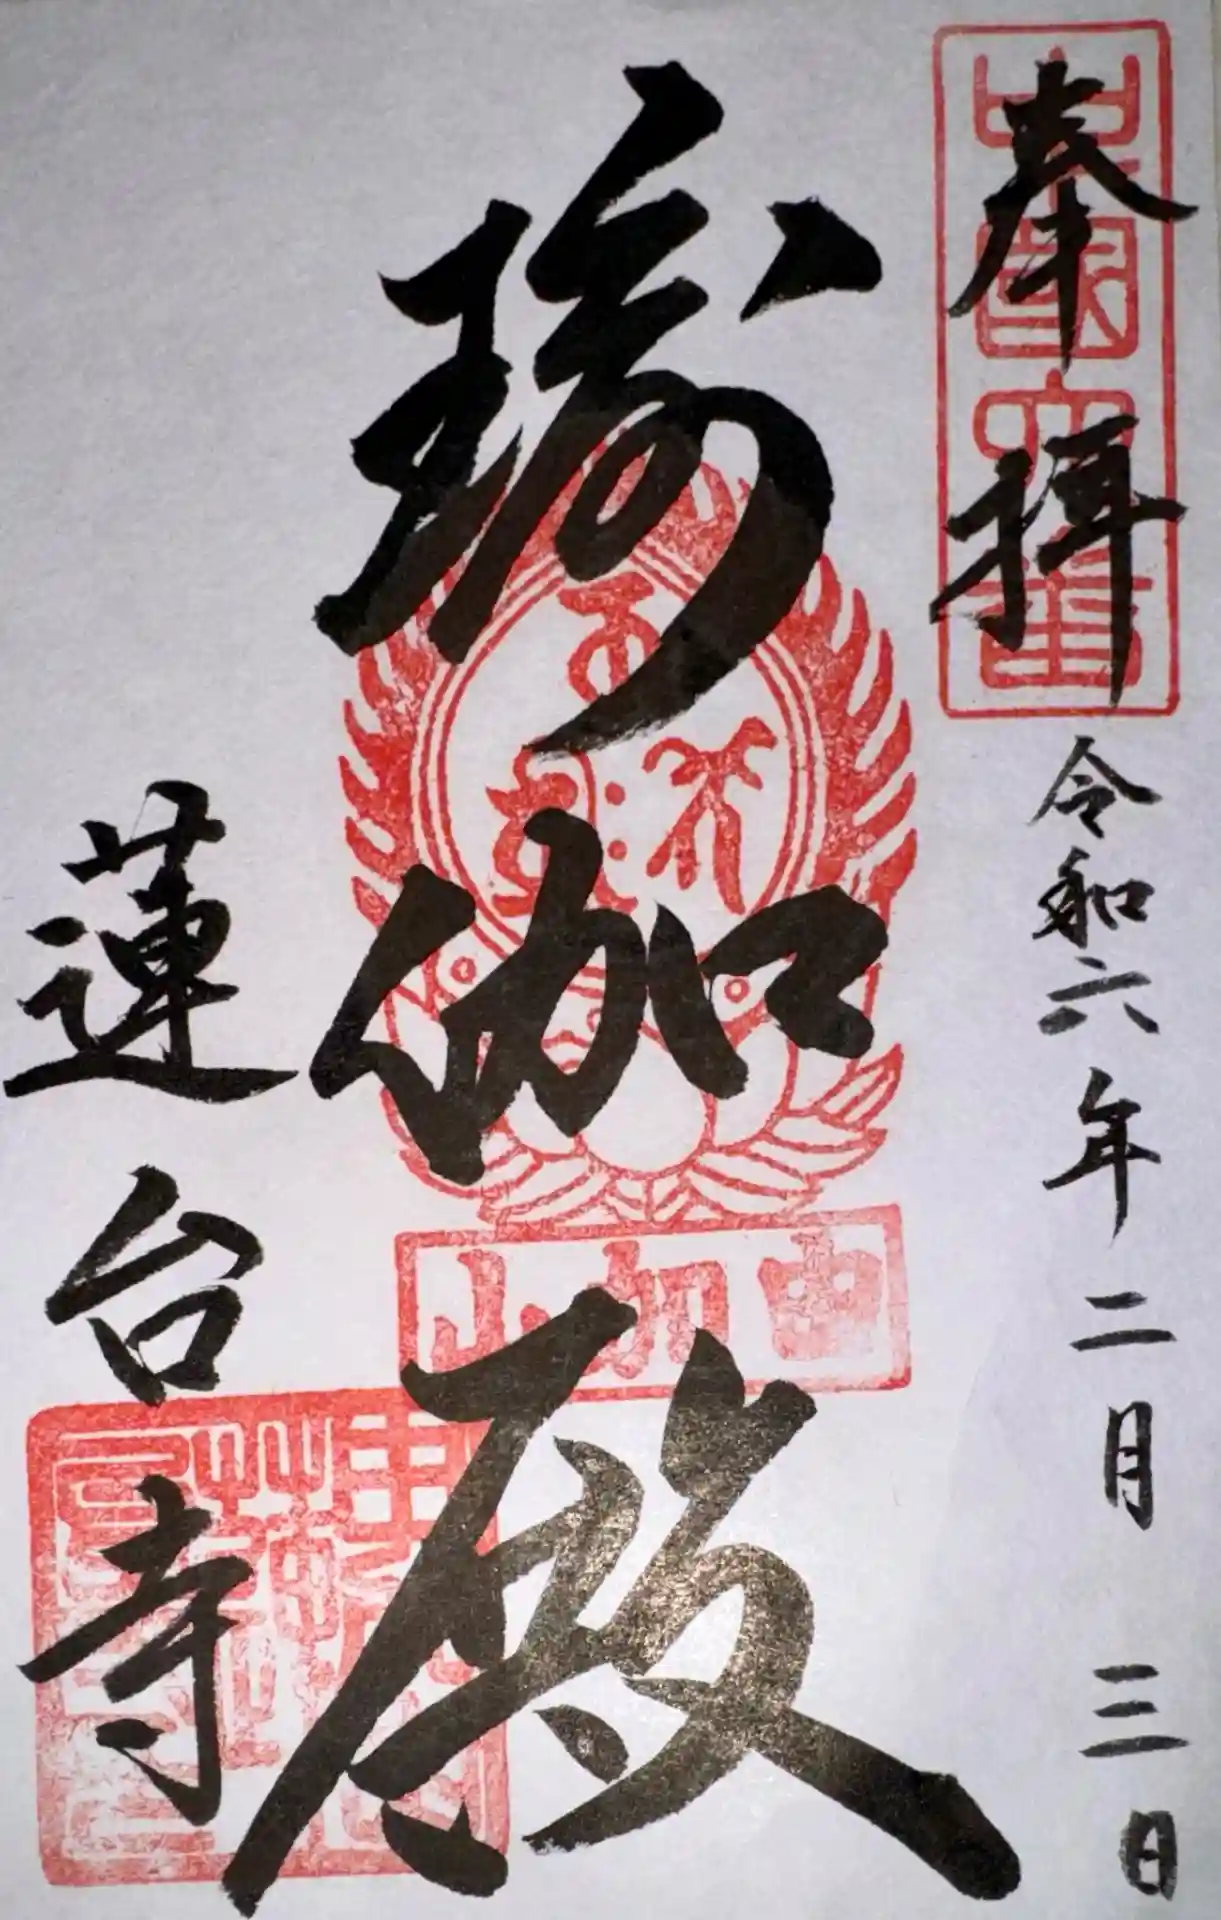 奉拝
中國六番
令和六年二月三日
瑜伽殿
由加山
蓮台寺